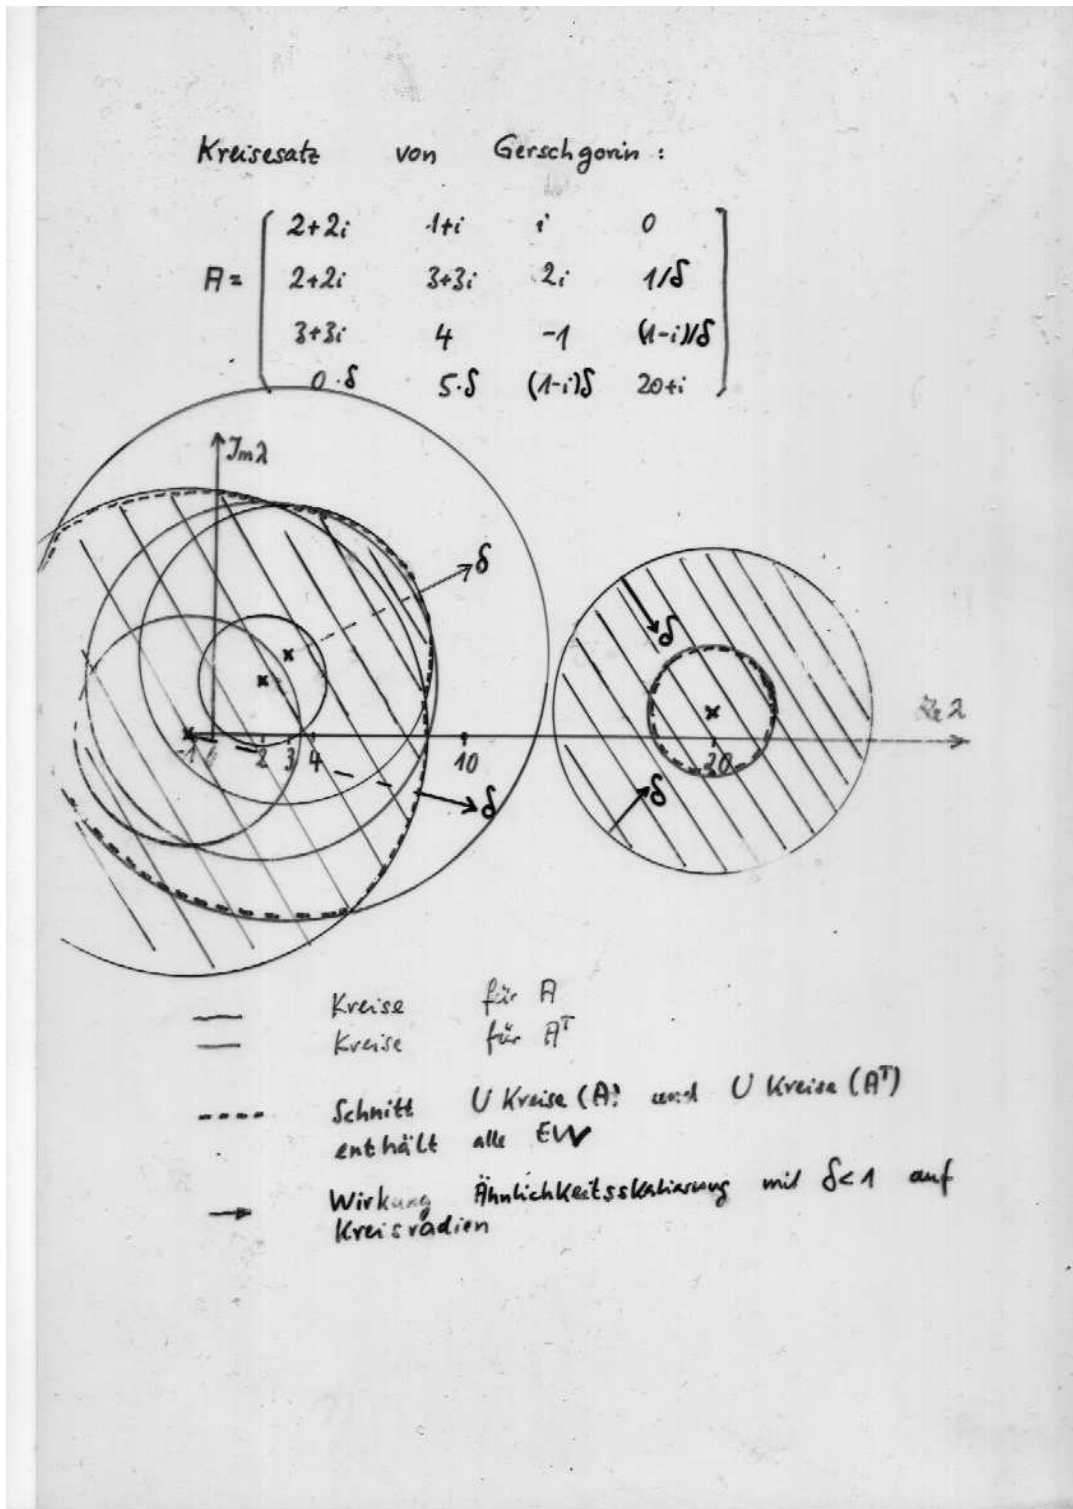 Kreisesatz von Gerschgorin :
2+2i 1+i i 0
A = 2+2i 3+3i 2i 1/δ
3+3i 4 -1 (1-i)/δ
0·δ 5·δ (1-i)δ 20+i
Im λ
δ
δ
Re λ
-1 1 2 3 4 10 20
δ
δ
Kreise für A
Kreise für Aᵀ
Schnitt U Kreise (A) und U Kreise (Aᵀ)
enthält alle EW
Wirkung Ähnlichkeitsskalierung mit δ<1 auf
Kreisradien